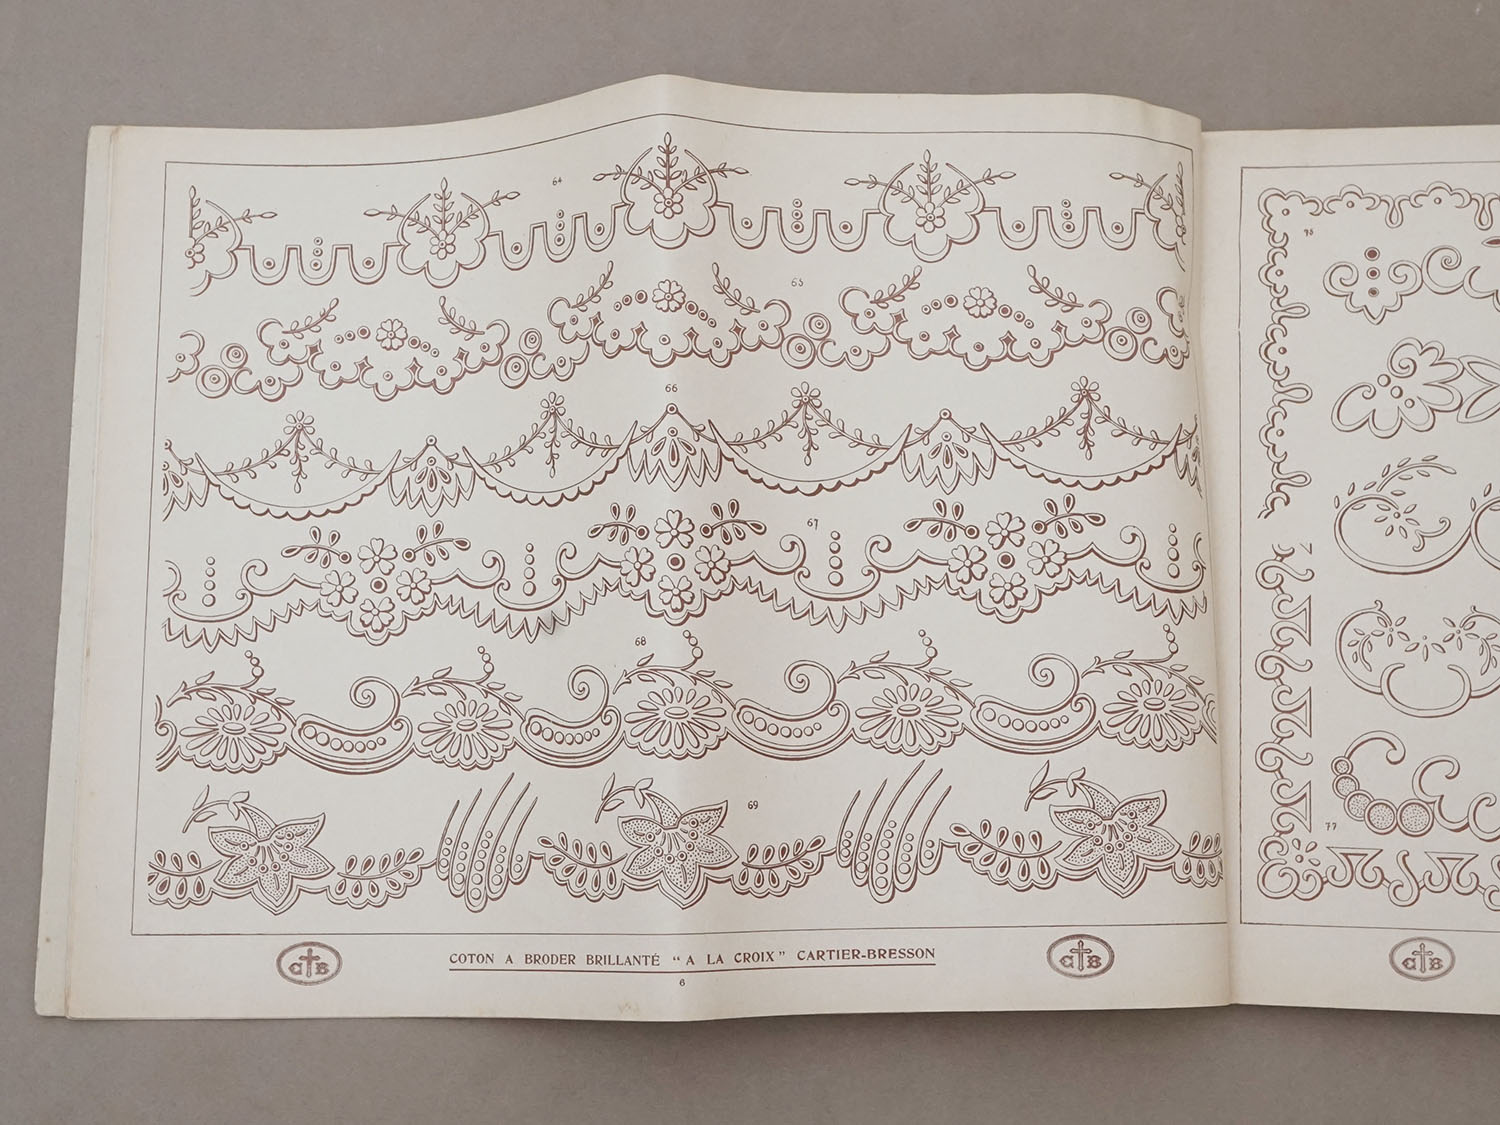 64
65
66
67
68
69
C B
COTON A BRODER BRILLANTÉ “A LA CROIX” CARTIER-BRESSON
C B
6
77
C B